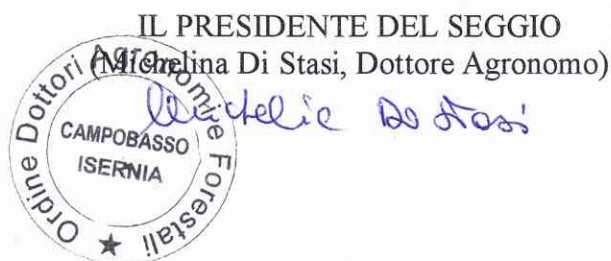 IL PRESIDENTE DEL SEGGIO
(Michelina Di Stasi, Dottore Agronomo)
Michelina Di Stasi
Ordine Dottori Agronomi e Forestali
CAMPOBASSO
ISERNIA